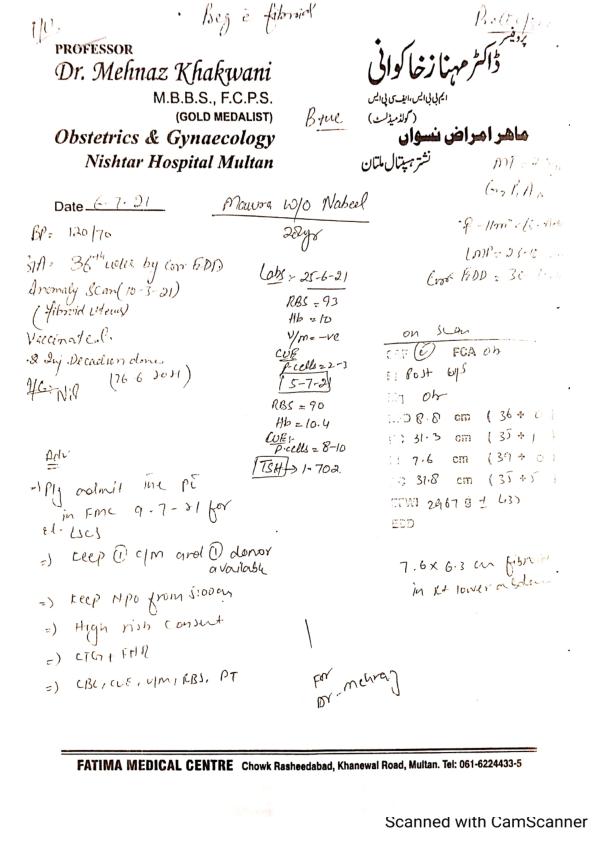 Beg c fibroid
PROFESSOR
Dr. Mehnaz Khakwani
M.B.B.S., F.C.P.S.
(GOLD MEDALIST)
Obstetrics & Gynaecology
Nishtar Hospital Multan
پروفیسر
ڈاکٹر مہناز خاکوانی
ایم بی بی ایس، ایف سی پی ایس
(گولڈ میڈلسٹ)
ماہر امراض نسواں
نشتر ہسپتال ملتان
B+ve
Date 6-7-21
Mawra W/O Nabeel
28yr
BP = 120/70
36+4 weeks by corr EDD
Anomaly Scan (10-3-21)
(fibroid uterus)
Vaccinated.
2 Inj. Decadron done
Nil
Labs:- 25-6-21
RBS = 93
Hb = 10
V/m = -ve
CUE
P.cells = 2-3
5-7-21
RBS = 90
Hb = 10.4
CUE:-
P.cells = 8-10
TSH → 1.702
LMP =
Corr EDD =
on Scan
FCA ok
Post u/s
8.8 cm (36 +
31.3 cm (35 +
7.6 cm (39 +
31.8 cm (35 + 5
2967 g ±
EDD
7.6 x 6.3 cm fibroid
in Rt lower
Adv
=) Plz admit the Pt
in FMC 9-7-21 for
El. LSCS
=) Keep ① c/m and ① donor
available
=) Keep NPO from 5:00am
=) High risk Consent
=) CTG + FHR
=) CBC, CUE, V/M, RBS, PT
for
Dr. Mehnaz
FATIMA MEDICAL CENTRE Chowk Rasheedabad, Khanewal Road, Multan. Tel: 061-6224433-5
Scanned with CamScanner